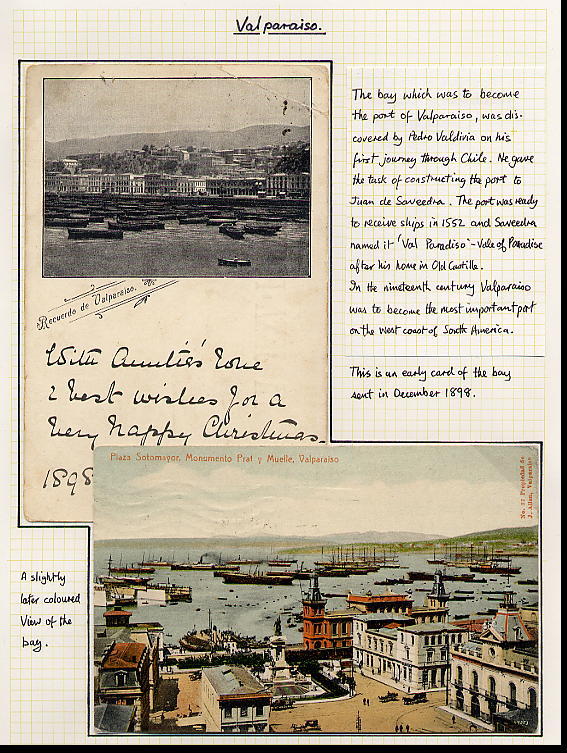 Valparaiso.
The bay which was to become
the port of Valparaiso, was dis-
covered by Pedro Valdivia on his
first journey through Chile. He gave
the task of constructing the port to
Juan de Saveedra. The port was ready
to receive ships in 1552 and Saveedra
named it 'Val Paradiso' - Vale of Paradise
after his home in Old Castilla.
In the nineteenth century Valparaiso
was to become the most important port
on the west coast of South America.
This is an early card of the bay
sent in December 1898.
Recuerdo de Valparaiso.
With Auntie's love
& best wishes for a
Very Happy Christmas.
1898
Plaza Sotomayor, Monumento Prat y Muelle, Valparaiso
No. 37 Propiedad de
J. Allan, Valparaiso
A slightly
later coloured
View of the
bay.